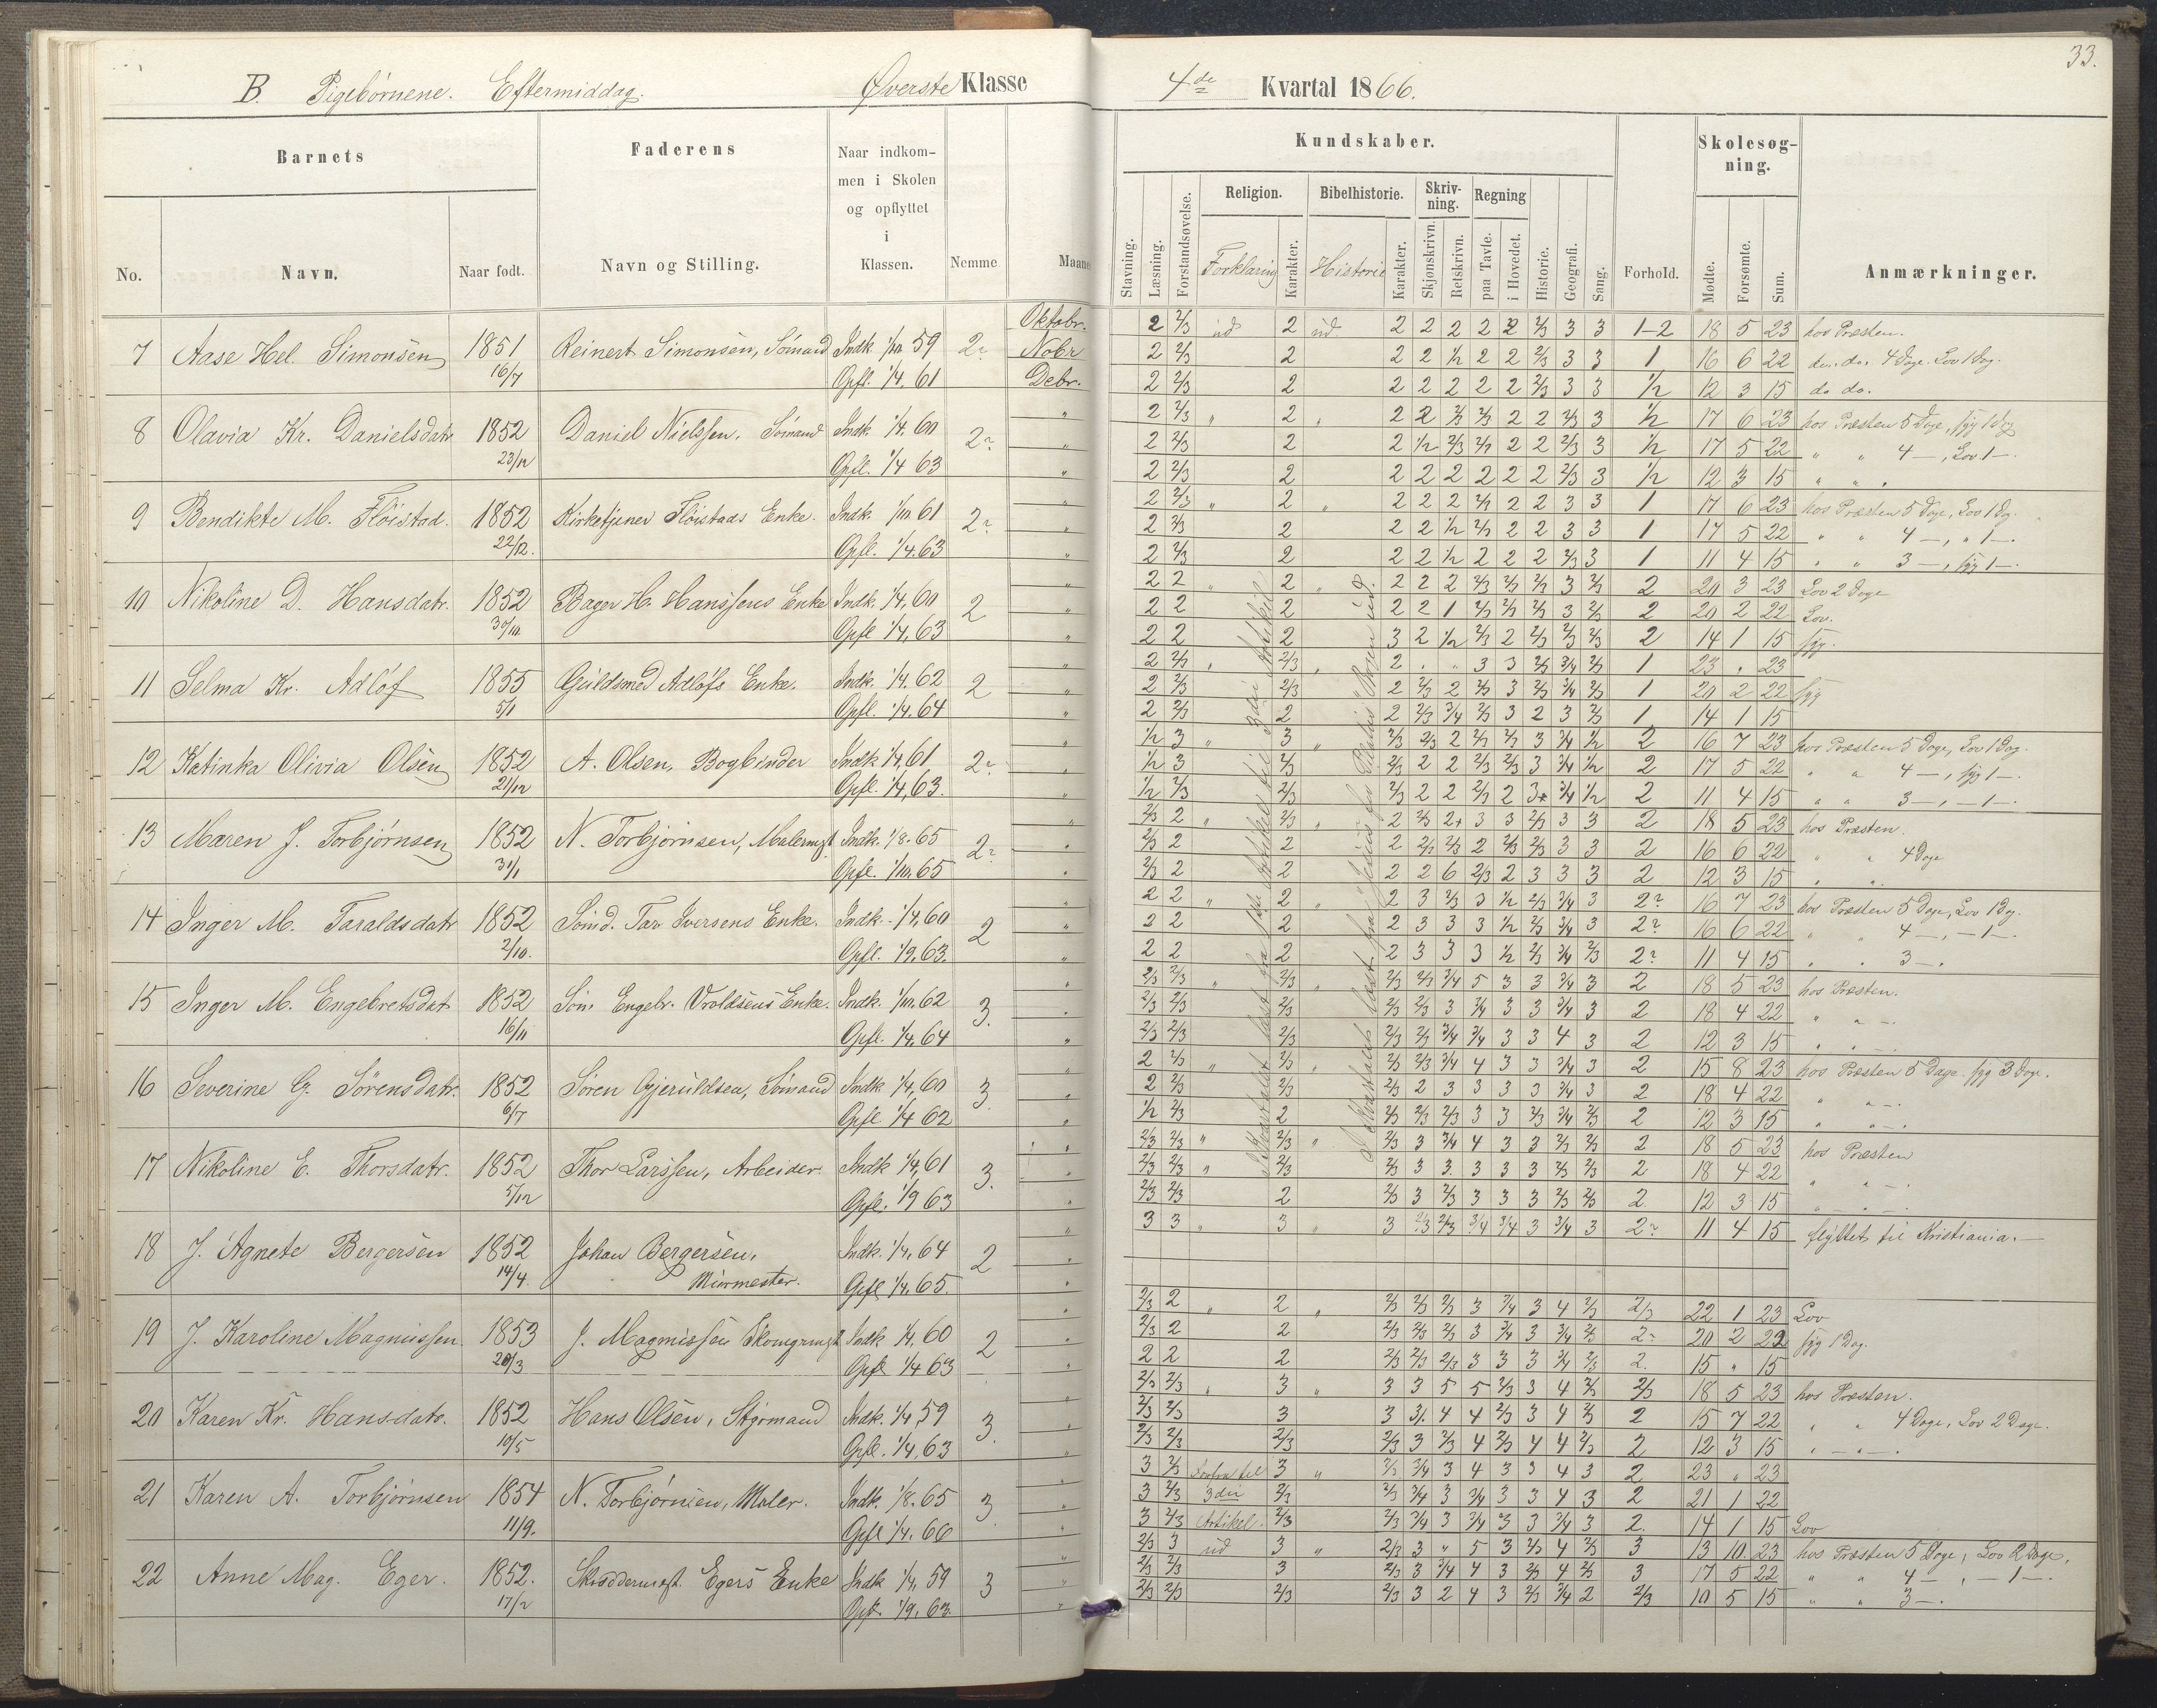 B. Pigebørnene. Eftermiddag. Øverste Klasse
4de Kvartal 1866.
33.
Barnets
Faderens
Naar indkom-
men i Skolen
og opflyttet
i
Klassen.
No.
Navn.
Naar født.
Navn og Stilling.
Nemme
Maane
Kundskaber.
Skolesøg-
ning.
Stavning.
Læsning.
Forstandsøvelse.
Religion.
Forklaring
Karakter.
Bibelhistorie.
Historie
Karakter.
Skriv-
ning.
Skjønskrivn.
Retskrivn.
Regning
paa Tavle.
i Hovedet.
Historie.
Geografi.
Sang.
Forhold.
Mødte.
Forsømte.
Sum.
Anmærkninger.
7 Aase Hel. Simonsen 1851 16/7 Reinert Simonsen, Sømand Indk. 1/10 59 Opfl. 1/4. 61 2? Oktobr. Nobr Debr.
2 2/3 ud 2 ud 2 2 2 2 2 2/3 3 3 1-2 18 5 23 hos Præsten.
2 2/3 2 2 2 1/2 2 2 2/3 3 3 1 16 6 22 do. do. 4 Dage. Lov 1 Dag.
2 2/3 2 2 2 2 2 2 2/3 3 3 1/2 12 3 15 do do.
8 Olavia Kr. Danielsdatr 1852 23/12 Daniel Nielssen, Sømand Indk. 1/4. 60 Opfl. 1/4 63 2?
2 2/3 " 2 " 2 2 2/3 2/3 2 2 2/3 3 1/2 17 6 23 hos Præsten 5 Dage, syg 1 Dag
2 2/3 2 2 1/2 2/3 2/3 2 2 2/3 3 1/2 17 5 22 " " 4 —, Lov 1 —.
2 2/3 2 2 2 2 2 2 2 2/3 3 1/2 12 3 15 " " "
9 Bendikte M. Fløistad. 1852 22/12. Kirketjener Fløistads Enke. Indk. 1/10. 61 Opfl. 1/4. 63 2?
2 2/3 " 2 " 2 2 2 2/3 2 2 3 3 1 17 6 23 hos Præsten 5 Dage, Lov 1 Dg.
2 2/3 2 2 2 1/2 2/3 2 2 3 3 1 17 5 22 " " 4 —, " 1 —.
2 2/3 2 2 2 1/2 2 2 2 2/3 3 1 11 4 15 " " 3 —, syg 1 —.
10 Nikoline D. Hansdatr. 1852 30/10. Bager H. Hanssens Enke Indk. 1/4. 60 Opfl 1/4. 63 2
2 2 " 2 " 2 2 2 2/3 2/3 2/3 3 2/3 2 20 3 23 Lov 2 Dage
2 2 2 2 2 1 2/3 2/3 2/3 3 2/3 2 20 2 22 Lov.
2 2 2 3 2 1/2 2/3 2 2/3 2/3 2/3 2 14 1 15 syg.
11 Selma Kr. Adløf 1855 5/1 Guldsmed Adløfs Enke. Indk. 1/4. 62 Opfl. 1/4. 64 2
2 2/3 " 2/3 " 2 " " 3 3 2/3 3/4 2/3 1 23 " 23
2 2/3 2/3 2 2/3 2 2/3 3 2/3 3/4 2/3 1 20 2 22 syg
2 2/3 2 2 2/3 3/4 2/3 3 2 3 2/3 1 14 1 15
12 Katinka Olivia Olsen 1852 21/12 A. Olsen, Bogbinder Indk 1/4. 61 Opfl. 1/4. 63. 2?
1/2 3 " 3 " 2/3 2/3 2 2/3 2/3 3 3/4 1/2 2 16 7 23 hos Præsten 5 Dage, Lov 1 Dag.
1/2 3 2/3 2/3 2 2 2/3 2/3 3 3/4 1/2 2 17 5 22 " " 4 —, syg 1 —.
1/2 2/3 2/3 2/3 2 2 2/3 2 3+ 3/4 1/2 2 11 4 15 " " 3 —, — 1 —.
13 Maren J. Torbjørnsen 1852 31/1 N. Torbjørnsen, Malermst Indk. 1/8. 65 Opfl. 1/10. 65 2?
2/3 2 " 2/3 " 2 2/3 2+ 3 3 2/3 3 3 2 18 5 23 hos Præsten.
2/3 2 2 2 2/3 2/3 2 2/3 2/3 3 3 2 16 6 22 " " 4 Dage
2/3 2 2 2 2 6 2/3 2 3 3 3 2 12 3 15 " "
14 Inger M. Taraldsdatr 1852 2/10. Sømd. Tar Iversens Enke. Indk. 1/4. 60 Opfl. 1/9. 63. 2
2 2 " 2 " 2 3 2/3 3 1/2 2/3 3/4 3 2? 16 7 23 hos Præsten 5 Dage, Lov 1 Dg.
2 2 2 2 3 3 3 1/2 2/3 3/4 3 2? 16 6 22 " " 4 —, — 1 —.
2 2 2 2 3 3 3 1/2 2/3 3/4 2/3 2? 11 4 15 " " 3 —.
15 Inger M. Engebretsdatr 1852 16/11 Søm Engebr. Vroldsens Enke. Indk. 1/10. 62 Opfl. 1/4. 64 3.
2/3 2/3 " 2/3 " 2/3 2/3 3/4 5 3 3 3/4 3 2 18 5 23 hos Præsten.
2/3 2/3 2/3 2/3 2/3 3 3/4 3 3 3/4 3 2 18 4 22 " " —.
2/3 2/3 2/3 2/3 2/3 3/4 3/4 3 3 4 3 2 12 3 15 " "
16 Severine G. Sørensdatr. 1852 6/7 Søren Gjeruldsen, Sømand Indk 1/4. 60 Opfl 1/4 62 3.
2 2/3 " 2/3 " 2/3 2/3 3/4 4 3 3 3/4 3 2 15 8 23 hos Præsten 5 Dage. syg 3 Dage.
2 2/3 2/3 2/3 2 3 3 3 3 3/4 3 2 18 4 22 " " —.
1/2 2/3 2 2/3 2/3 2/3 3 3 2/3 3/4 2/3 2 12 3 15 " " —.
17 Nikoline E. Thorsdatr. 1852 5/12 Thor Larssen, Arbeider. Indk 1/4. 61 Opfl. 1/9 63 3.
2/3 2/3 " 2/3 " 2/3 3 3/4 4 3 3 2/3 2/3 2 18 5 23 hos Præsten
2/3 2/3 " 2/3 2/3 3 3. 3 3 3 2/3 2/3 2 18 4 22 " " —.
2/3 2/3 2 2/3 3 2/3 3 3 3 2/3 2/3 2. 12 3 15 " — " — "
18 J. Agnete Bergersen 1852 14/4. Johan Bergersen, Muurmester. Indk. 1/4. 64 Opfl 1/4. 65. 2
3 3 " 3 " 3 2/3 2/3 3/4 3/4 3 3/4 3 2? 11 4 15 flyttet til Kristiania. —
19 J. Karoline Magnussen. 1853 20/3 J. Magnussen Skomgrmst Indk 1/4. 60 Opfl 1/4 63 2
2/3 2 " 2 " 2/3 2/3 2/3 3 3/4 3 4 2/3 2/3 22 1 23 Lov
2/3 2 2 2/3 2/3 2/3 3 3/4 3 3/4 2/3 2? 20 2 22 syg 1 Dag.
2 2 2 2/3 2/3 2/3 3 3 3 3/4 2/3 2. 15 " 15
20 Karen Kr. Hansdatr. 1852 10/5 Hans Olsen, Styrmand Indk. 1/4 59 Opfl. 1/4. 63 3.
2/3 2/3 " 3 " 3 3 5 5 2/3 3 4 2/3 2/3 18 5 23 hos Præsten.
2/3 2/3 3 3 3/. 4 4 2/3 3 4 2/3 2 15 7 22 " " 4 Dage, Lov 2 Dage.
2/3 2/3 2/3 2/3 3 2/3 4 2/3 4 4 2/3 2 12 3 15 " — " —.
21 Karen A. Torbjørnsen 1854 11/9. N. Torbjørnsen, Maler. Indk. 1/8. 65 Opfl 1/4. 66 3.
3 2/3 til 3 " 2/3 3/4 3 4 3 3 4 3 2 23 " 23
3 2/3 3die 2/3 2/3 3/4 3 3/4 3 3 4 3 2 21 1 22
3 2/3 Artikel. 2/3 2/3 3/4 3 3/4 3 3 3/4 3 2. 14 1 15 Lov
22 Anne Mag. Eger. 1852. 17/2 Skræddermst. Egers Enke Indk 1/4. 59 Opfl. 1/9. 63. 3
2/3 3 ud 3 " 2/3 3 " 5 3 2/3 4 2/3 3 13 10. 23 hos Præsten 5 Dage, Lov 2 Dage.
2/3 2/3 3 2/3 3 3/4 4 3 2/3 4 2/3 3 17 5 22 " " 4 —, — 1 —.
2/3 2/3 2/3 2/3 3 2 4 3 2/3 3/4 2 2/3 10 5 15 " " 3 —.
I Kvartalet læst fra 1ste Artikel til 3die Artikel
I Kvartalet læst fra "Jesus for Pilatus" Bogen ud.